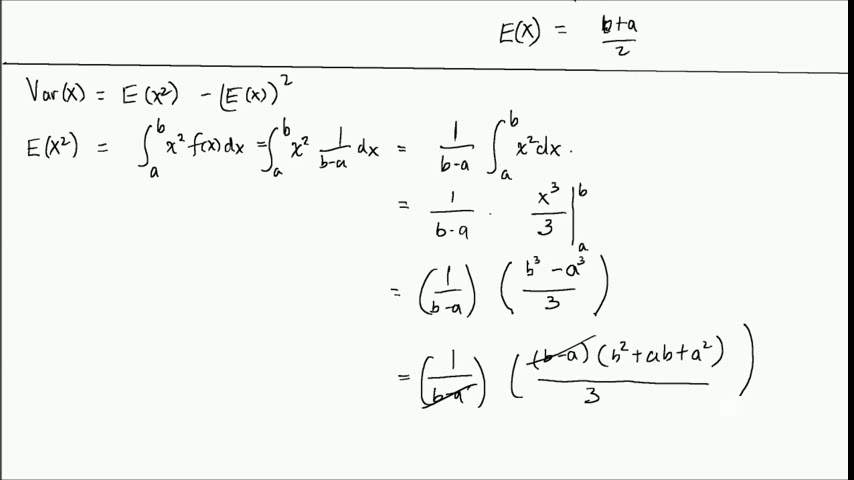 E(X) = (b+a)/2
Var(X) = E(X²) - (E(X))²
E(X²) = ∫_a^b x² f(x) dx = ∫_a^b x² 1/(b-a) dx = 1/(b-a) ∫_a^b x² dx.
= 1/(b-a) · x³/3 |_a^b
= (1/(b-a)) ((b³-a³)/3)
= (1/(b-a)) ((b-a)(b²+ab+a²)/3)